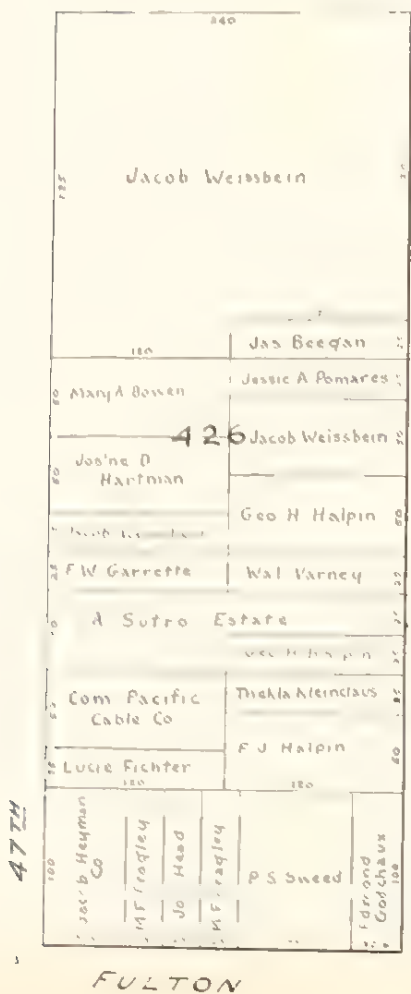 240
Jacob Weissbein
Jas Beegan
120
Mary A Bowen
Jessie A Pomares
50
426
Jacob Weissbein
50
Jos'ne D
Hartman
50
Geo H Halpin
50
F W Garrette
25
Wal Varney
25
A Sutro Estate
25
Com Pacific
Cable Co
Thekla Kleinclaus
25
F J Halpin
50
Lucie Fichter
25
120
120
47TH
100
Jacob Heyman
Co
M F Fragley
Jo Head
P S Sneed
Edmond
Godchaux
100
FULTON